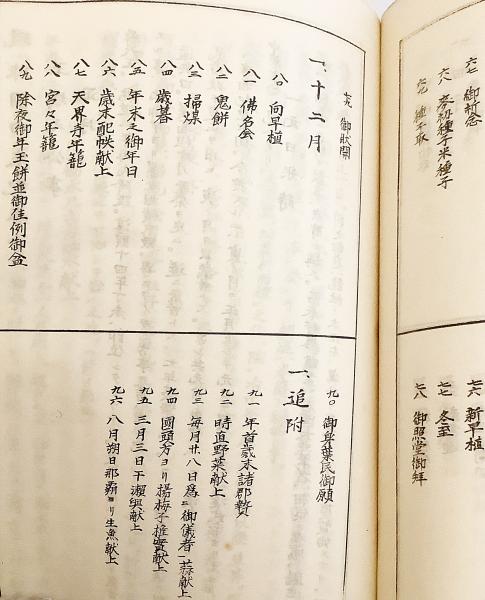 六七 御祈念
六八 麦初種子米種子
六九 種子取
七六 新早植
七七 冬至
七八 御照堂御拝
七九 御状開
一、十二月
八〇 向早植
八一 佛名会
八二 鬼餅
八三 掃煤
八四 歳暮
八五 年末之御年日
八六 歳末配帙献上
八七 天界寺年籠
八八 宮々年籠
八九 除夜御年玉餅並御佳例御盆
九〇 御百葉民御願
一、追附
九一 年首歳末諸郡贄
九二 時直野菜献上
九三 毎月廿八日為ニ御儀者一蒜献上
九四 國頭方ヨリ楊梅子椎實献上
九五 三月三日干瀬与献上
九六 八月朔日那覇ヨリ生魚献上